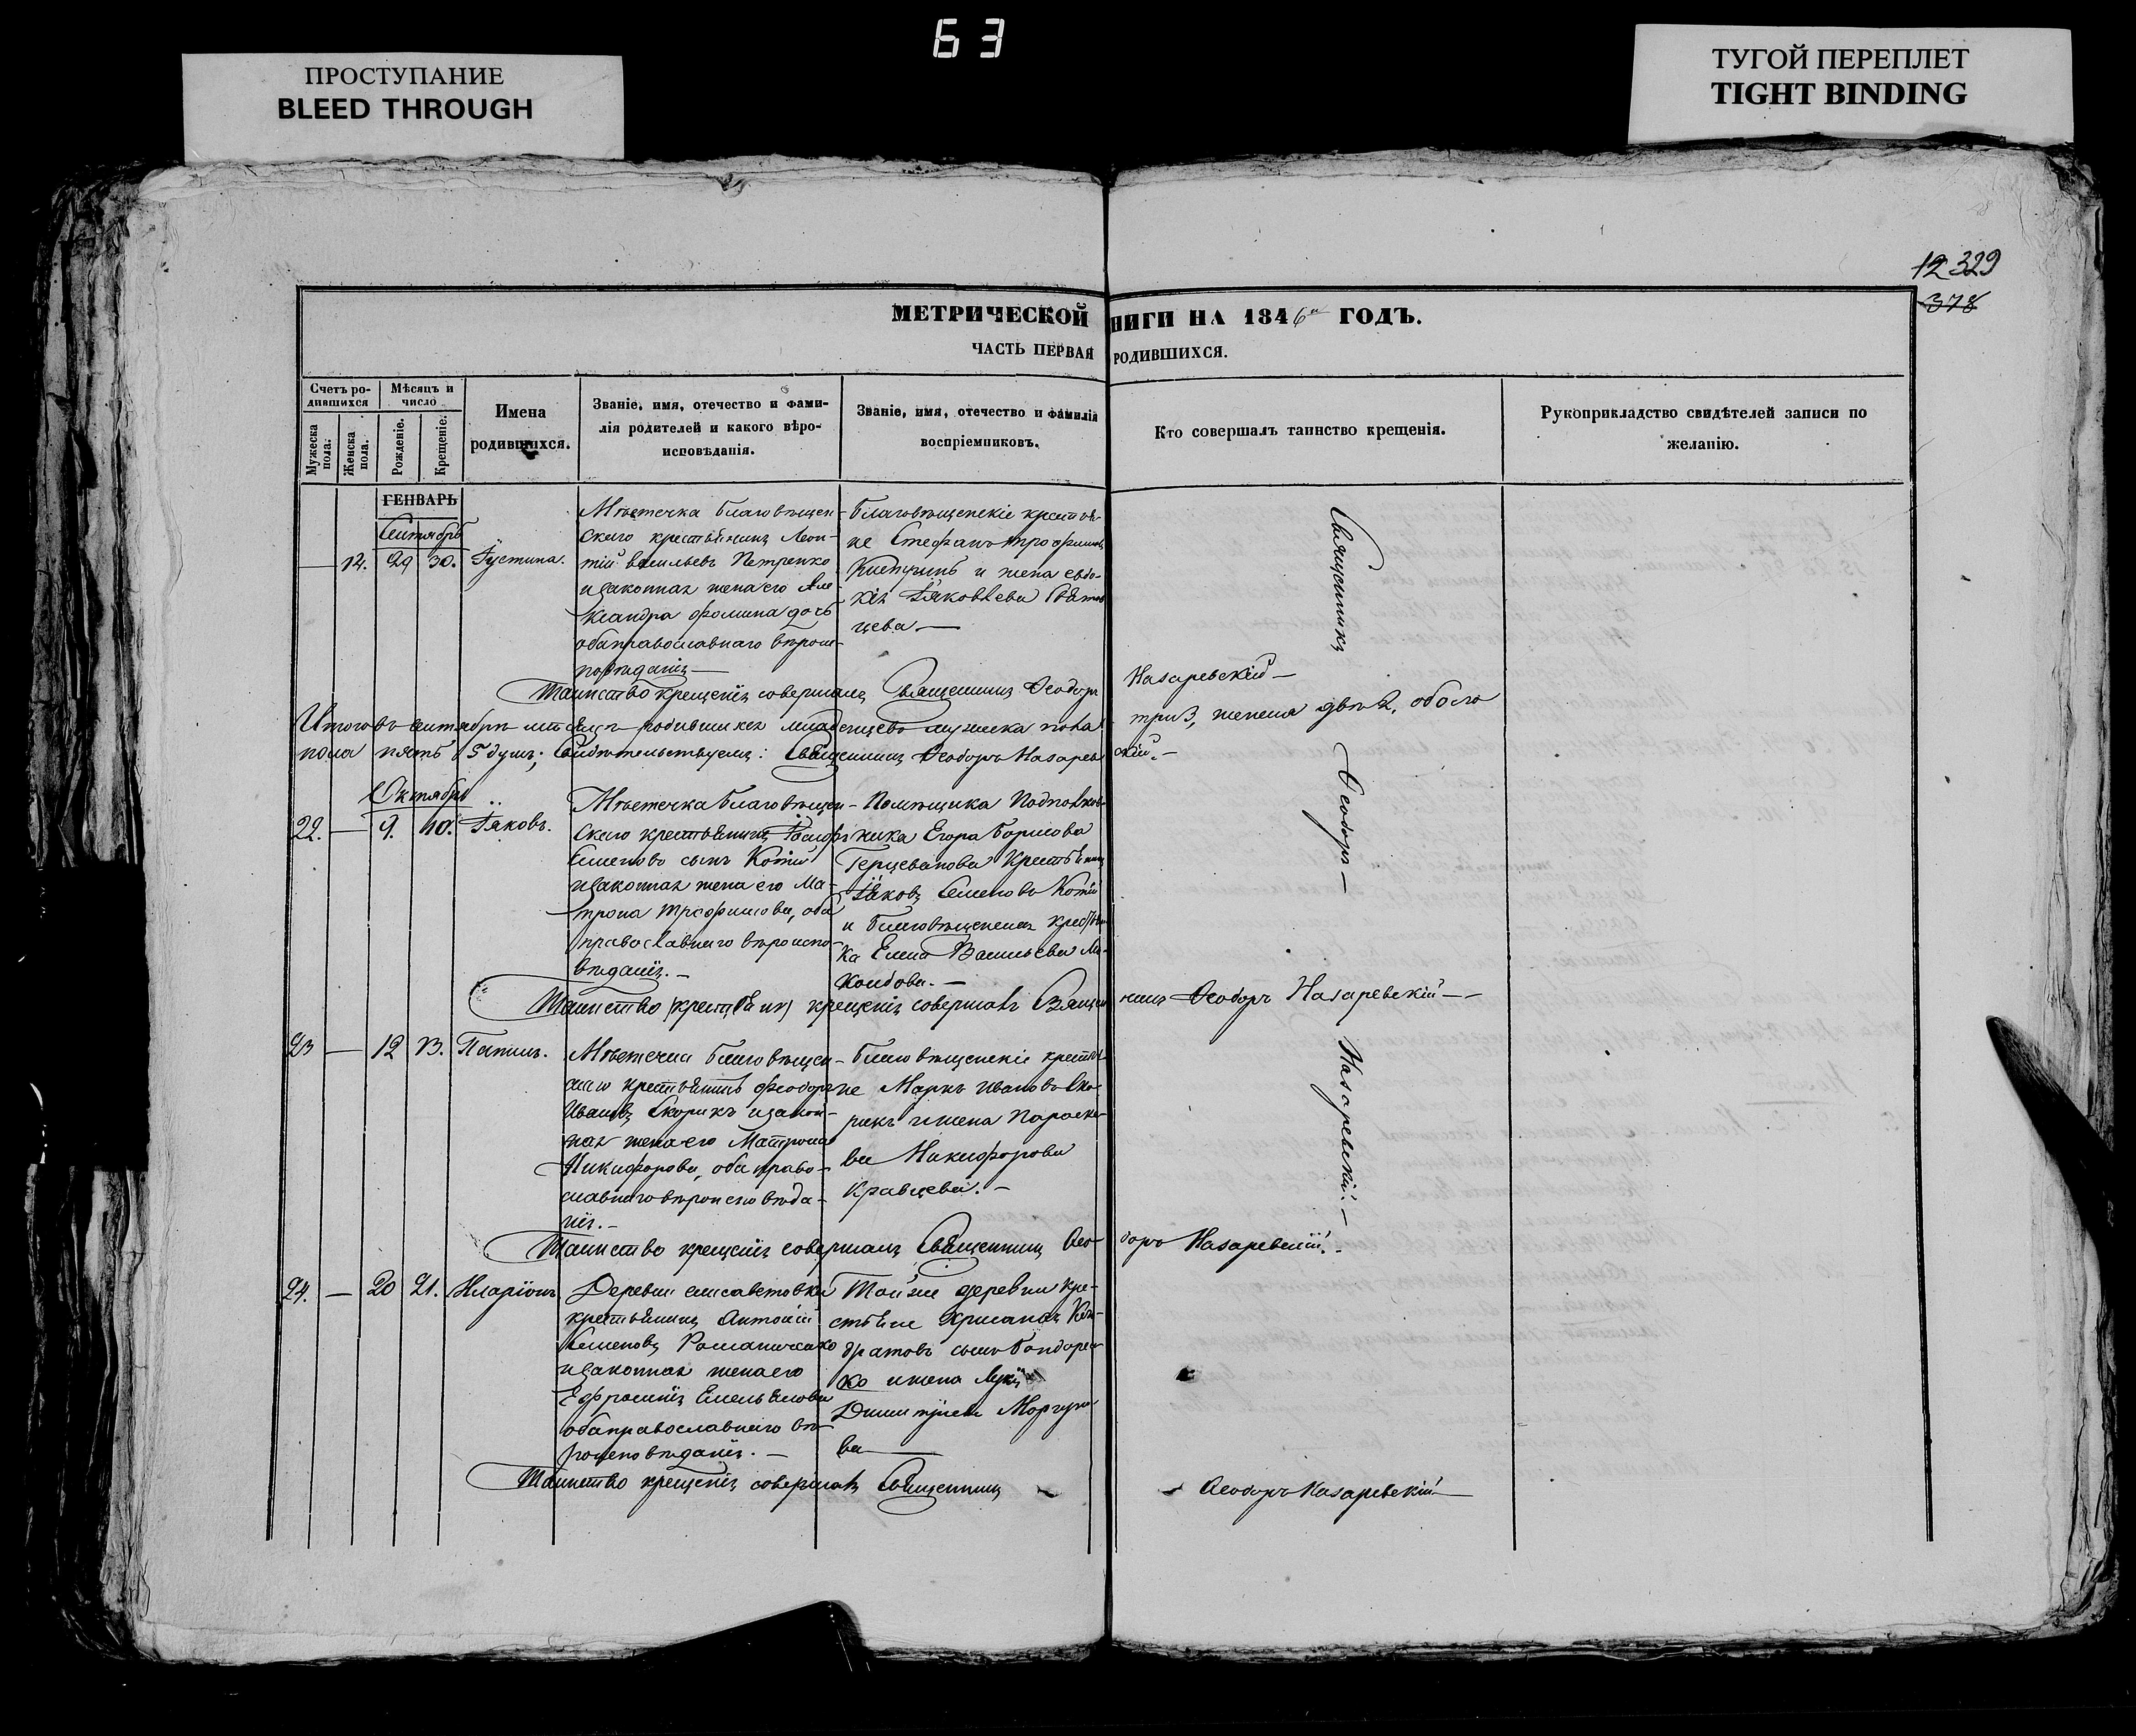 63
ПРОСТУПАНИЕ
BLEED THROUGH
ТУГОЙ ПЕРЕПЛЕТ
TIGHT BINDING
12 329
378
МЕТРИЧЕСКОЙ НИГИ НА 1846 ГОДЪ.
ЧАСТЬ ПЕРВАЯ РОДИВШИХСЯ.
Счетъ ро-
дившихся
Мужеска пола.
Женска пола.
Мѣсяцъ и
число
Рожденіе.
Крещеніе.
Имена
родившихся.
Званіе, имя, отечество и фами-
лія родителей и какого вѣро-
исповѣданія.
Званіе, имя, отечество и фамилія
воспріемниковъ.
Кто совершалъ таинство крещенія.
Рукоприкладство свидѣтелей записи по
желанію.
ГЕНВАРЬ
Сентябрь
— 12. 29 30. Іустина.
Мѣстечка благовѣщен-
скаго крестьянинъ Леон-
тій васильевъ Петренко
и законная жена его Але-
ксандра фомина дочь
оба православнаго вѣроис-
повѣданія —
благовѣщенскіе крестья-
не Стефанъ трофимовъ
и жена евдо-
кія Іаковлева
цева —
Таинство крещенія совершалъ Священникъ Ѳеодоръ Назаревскій —
Итого въ сентябрѣ мѣсяцѣ родившихся младенцевъ мужеска пола три 3, женска двѣ 2, обоего
пола пять 5 душъ; Свидѣтельствуемъ: Священникъ Ѳеодоръ Назарев скій. —
Октябрь
22. — 9. 10. Іаковъ.
Мѣстечка благовѣщен-
скаго крестьянинъ
Семеновъ сынъ
и законная жена его Ма-
трона Трофимова, оба
православнаго вѣроиспо-
вѣданія. —
Помѣщика Подполков-
ника Егора борисова
Герцеванова крестьянинъ
Іаковъ Семеновъ
и благовѣщенская крестьян-
ка Елена Васильева
Таинство крещенія совершалъ Священ никъ Ѳеодоръ Назаревскій —
23 — 12 13.
Мѣстечка благовѣщен-
скаго крестьянинъ феодоръ
Ивановъ Скорикъ и закон-
ная жена его Матрона
Никифорова, оба право-
славнаго вѣроисповѣда-
нія. —
благовѣщенскіе крестья-
не Маркъ Ивановъ Ско-
рикъ и жена Параске-
ва Никифорова
Кравцева. —
Таинство крещенія совершалъ Священникъ Ѳео доръ Назаревскій. —
24. — 20 21. Иларіонъ
Деревни елисаветовки
крестьянинъ Антоній
Семеновъ Романченко
и законная жена его
Ефросинія Емельянова
оба православнаго вѣ-
роисповѣданія. —
Той же деревни кре-
стьяне Кон-
дратовъ сынъ бондарен-
ко и жена
Димитріева
ва —
Таинство крещенія совершалъ Священникъ Ѳеодоръ Назаревскій —
Священникъ
Ѳеодоръ —
Назаревскій. —